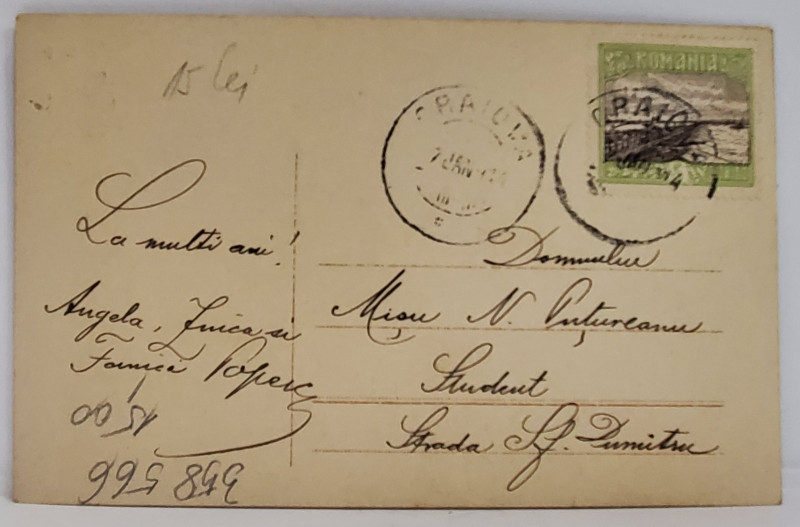 15 lei
ROMANIA
CRAIOVA
7 JAN
CRAIO
La multi ani!
Angela, Jnica si
Fănică Popesc
Domnului
Mişu N. Puţureanu
Student
Strada Sf. Dumitru
1500
558 566